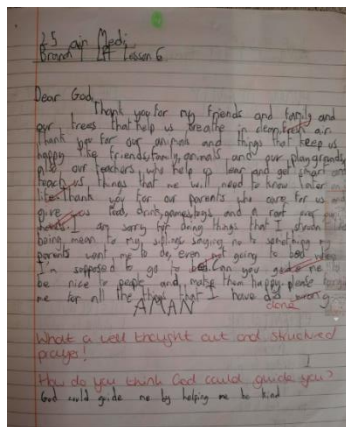 Branch L4 Lesson 6
Dear God,
Thank you for my friends and family and
our trees that help us breathe in clean fresh air.
Thank you for our animals and things that keep us
happy like friends, family, animals and our playgrounds
our teachers, who help us lear and get smart and
teach us things that we will need to know later
life. Thank you for our parents who care for us and
give us food, drinks, games, toys, and a roof over
I am sorry for doing things that I
being mean to my siblings saying no to something my
parents want me to do, even not going to bed
I'm supposed to go to bed. Can you me to
be nice to people and make them happy. please
me for all the things that I have
AMAN
done wrong
What a well thought out and structured
prayer!
How do you think God could guide you?
God could guide me by helping me be kind